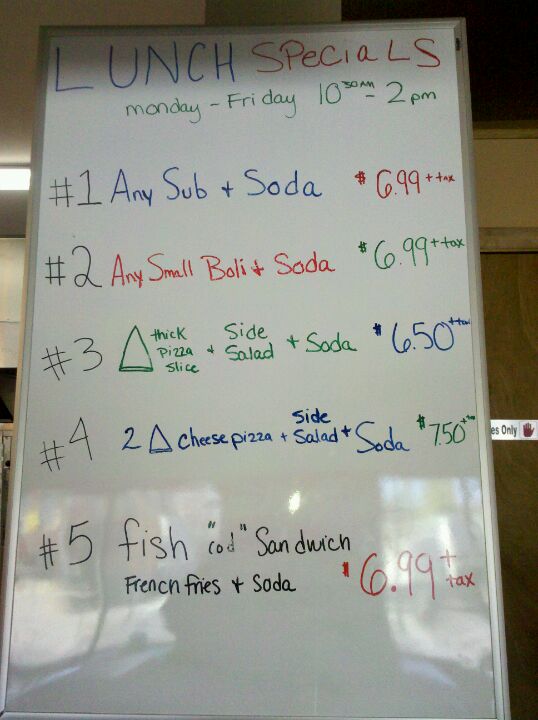 LUNCH SPeciaLS
monday - Friday 10³⁰ᴬᴹ - 2 pm
#1 Any Sub + Soda $ 6.99 + tax
#2 Any Small Boli + Soda $ 6.99 + tax
#3 thick pizza slice + Side Salad + Soda $ 6.50 + tax
#4 2 cheese pizza + Side Salad + Soda $ 7.50 + tax
#5 fish "cod" Sandwich
French fries + Soda $ 6.99 + tax
es Only